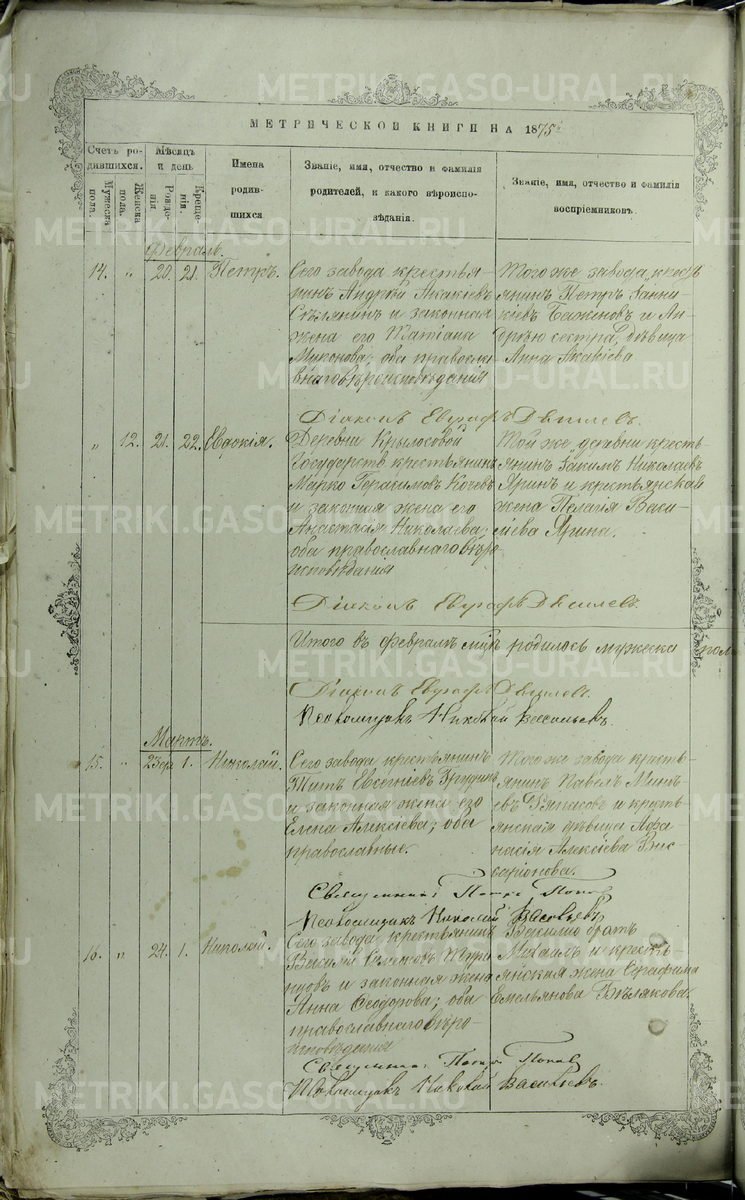 МЕТРИЧЕСКОЙ КНИГИ НА 1875
Счетъ ро-
дившихся.
Мужеска
пола.
Женска
пола.
Мѣсяцъ
и день
Рожде-
нія
Креще-
нія.
Имена
родив-
шихся
Званіе, имя, отчество и фамилія
родителей, и какого вѣроиспо-
вѣданія.
Званіе, имя, отчество и фамилія
воспріемниковъ.
Февраль.
14. " 20. 21. Петръ.
Сего завода крестья
нинъ Андрей Акакіевъ
и законная
жена его Татіана
оба правосла
внаго вѣроисповѣданія
Того же завода крест
янинъ Петръ
Баженовъ и Ан-
дрею сестра, дѣвица
Анна Акакіева
Діаконъ Евграфъ
" 12. 21. 22. Евдокія.
Деревни Крыласовой
Государств крестьянинъ
Марко Герасимовъ
и законная жена его
Анастасія Николаева;
оба православнаго вѣро
исповѣданія
Той же деревни кресть
янинъ Іоакимъ Николаевъ
Яринъ и крестьянская
жена Пелагія Васи-
лѣева Ярина.
Діаконъ Евграфъ
Итого въ февралѣ родилось мужеска пола
Діаконъ Евграфъ
Псаломщикъ Николай Васильевъ.
Мартъ.
15. " 23 1. Николай.
Сего завода крестьянинъ
Титъ
и законная жена его
Елена Алексіева; оба
православные.
Того же завода кресть
янинъ Павелъ
и кресть
янская дѣвица Афа
насія Алексіева Вис
саріонова.
Священникъ Петръ Поповъ
Псаломщикъ Николай Васильевъ
16. " 24. 1. Николай.
Сего завода крестьянинъ
Василій
и законная жена
Анна Ѳеодорова; оба
православнаго вѣро-
исповѣданія
Василію братъ
Михаилъ и кресть
янская жена Серафима
Емельянова Бѣлякова.
Священникъ Петръ Поповъ
Псаломщикъ Николай Васильевъ
METRIKI.GASO-URAL.RU